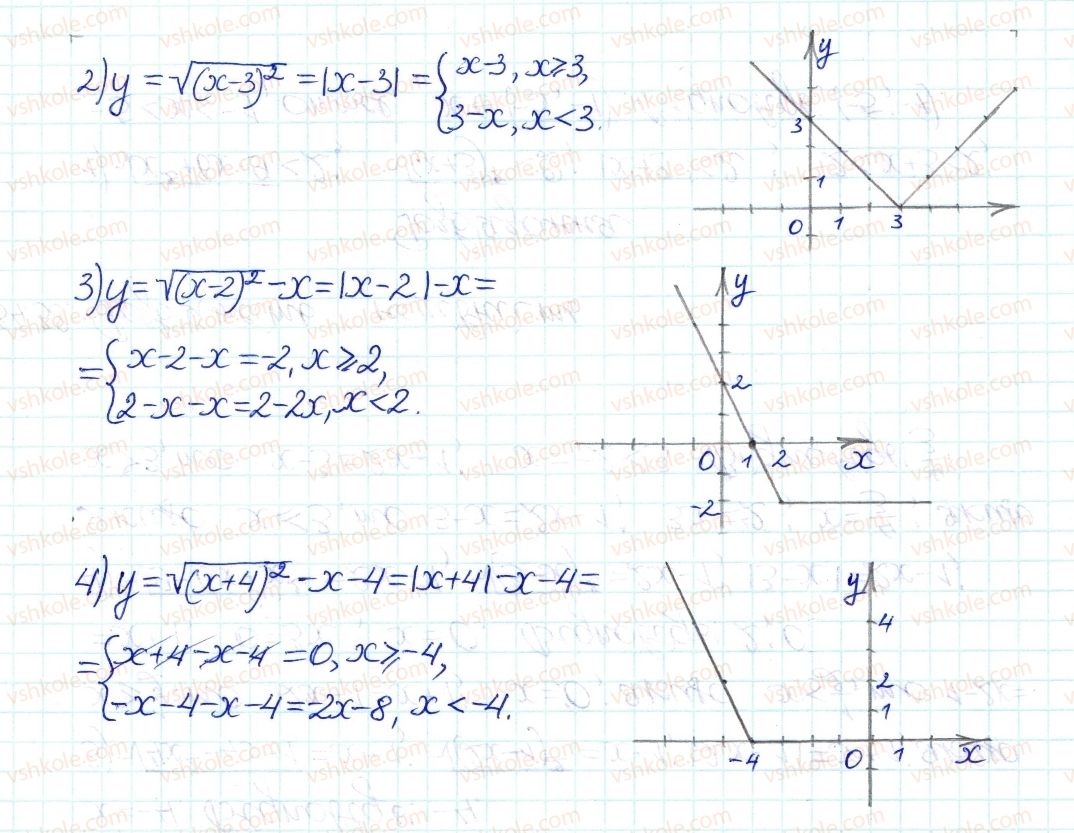 2) y = √(x-3)² = |x-3| = { x-3, x⩾3,
3-x, x<3.
y
3
1
0 1 3
3) y = √(x-2)² -x = |x-2|-x =
= { x-2-x = -2, x⩾2,
2-x-x = 2-2x, x<2.
y
2
0 1 2 x
-2
4) y = √(x+4)² -x-4 = |x+4|-x-4 =
= { x+4-x-4 = 0, x⩾-4,
-x-4-x-4 = -2x-8, x<-4.
y
4
2
1
-4 0 1 x
vshkole.com